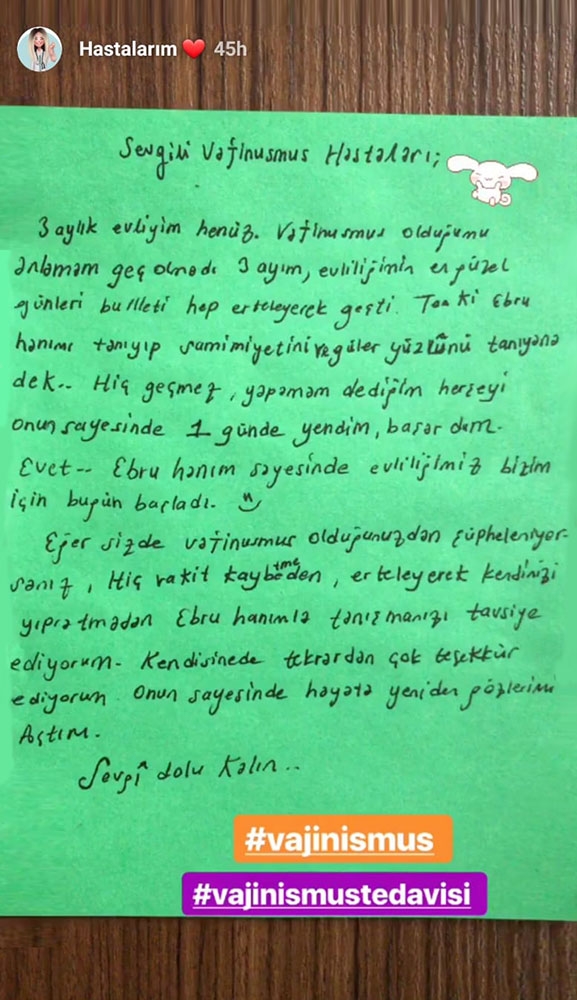 Hastalarım ❤ 45h
Sevgili Vajinusmus Hastaları;
3 aylık evliyim henüz. Vajinusmus olduğumu
anlamam geç olmadı 3 ayım, evliliğimin en güzel
günleri bu illeti hep erteleyerek geçti. Taa ki Ebru
hanımı tanıyıp samimiyetini ve güler yüzlünü tanıyana
dek.. Hiç geçmez, yapamam dediğim herşeyi
onun sayesinde 1 günde yendim, başardım.
Evet -- Ebru hanım sayesinde evliliğimiz bizim
için bugün başladı.
Eğer sizde vajinusmus olduğunuzdan şüpheleniyor-
sanız, Hiç vakit kaybetmeden, erteleyerek kendinizi
yıpratmadan Ebru hanımla tanışmanızı tavsiye
ediyorum. Kendisinede tekrardan çok teşekkür
ediyorum. Onun sayesinde hayata yeniden gözlerimi
Açtım.
Sevgi dolu Kalın..
#vajinismus
#vajinismustedavisi